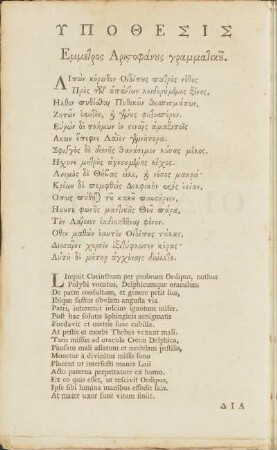 ΥΠΟΘΕΣΙΣ
Εμμετρος Αριστοφάνους γραμματικοῦ.
Λιπὼν κόρινθον Οἰδίπους πατρὸς νόθος
Πρὸς τῶν ἁπάντων λοιδορούμενος ξένος,
Ηλθεν πυθέσθαι Πυθικῶν θεσπισμάτων,
Ζητῶν ἑαυτὸν, καὶ γένους φυτοσπόρον.
Εὑρὼν δὲ τλήμων ἐν στεναῖς ἁμαξιτοῖς
Ακων ἔπεφνε Λάϊον γεννήτορα.
Σφιγγὸς δὲ δεινῆς θανάσιμον λύσας μέλος,
Ησχυνε μητρὸς ἀγνοουμένης λέχος.
Λοιμὸς δὲ Θήβας εἷλε, καὶ νόσος μακρά·
Κρέων δὲ πεμφθεὶς Δελφικὴν πρὸς ἑστίαν,
Οπως πύθηται τοῦ κακοῦ παυστήριον,
Ηκουσε φωνῆς μαντικῆς Θεοῦ πάρα,
Τὸν Λάϊειον ἐκδικηθῆναι φόνον.
Οθεν μαθὼν ἑαυτὸν Οἰδίπους τάλας,
Δισσαῖσι χερσὶν ἐξετύφλωσεν κόρας·
Αὐτὴ δὲ μήτηρ ἀγχόναις διώλετο.
LInquit Corinthum per probrum Oedipus, nothus
Polybi vocatus, Delphicumque oraculum
De patre consultum, et genere petit suo,
Ibique factus obviam angusta via
Patri, interemit inscius ignotum miser.
Post hac solutis sphingicis aenigmatis
Foedavit et matris suae cubilia.
At pestis et morbi Thebas vexant mali.
Tum missus ad oracula Creon Delphica,
Pausam mali allatum et modelam pestilis,
Monetur a divinitus misso sono
Placent ut interfecti manes Laii
Acto paterna perpetratore ex humo.
Ex eo quis esset, ut rescivit Oedipus,
Ipse sibi lumina manibus effodit suis.
At mater uxor sune vitam finiit.
ΔΙΑ